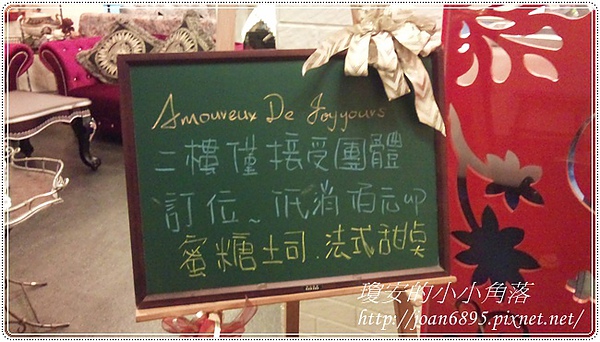 Amoureux De Joyyours
二樓僅接受團體
訂位~低消百元up
蜜糖土司.法式甜點
瓊安的小小角落
http://joan6895.pixnet.net/